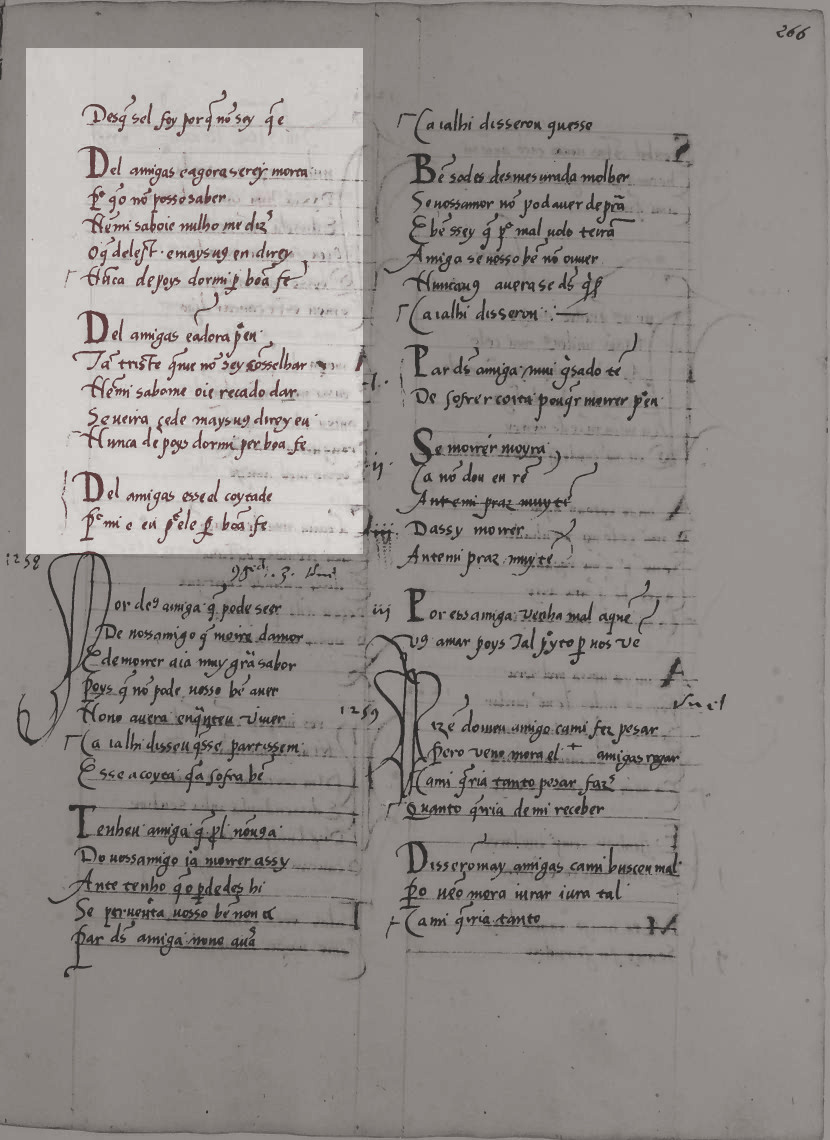 266
Desq̄ sel foy por q̄ nō sey q̄ e
Del amigas eagora serey morta
q̄o nō posso saber
Nēmi saboie nulho me diz
Oq̄ delest. emays uꝯ en direy
Nūca depoys dormi ꝑ boā fe
Del amigas eadora pēn
Ta triste q̄ue nō sey cōsselhar
Nēmi sabome oie recado dar
Se ueira çede mays uꝯ direy eu
Nunca de poys dormi per boa fe
Del amigas esse el coytade
mi e eu ele ꝑ boā fe
1258
Por deꝯ amiga q̄ pode seer
De nossamigo q̄ moire damor
E de morrer aia muy grā sabor
Poys q̄ nō pode uosso bē auer
Nono auera viuer
Ca ialhi disseu q̄sse partissem
E sse a coyta q̄a sofra bē
Tenheu amiga q̄
Do uossamigo ia morrer assy
Ante tenho hi
Se peruentā uosso bē non a
Par ds̄ amiga nono
Ca ialhi disseron quesse
Bē sodes desmesurada molher
Se nossamor nō pod auer de prā
E bē ssey q̄ mal uolo teirā
Amiga se uosso bē nō ouuer
Nuncauꝯ auera se ds̄
Ca ialhi disseron
Par ds̄ amiga mui gⁱsado tē
De sofrer coita morrer
Se morrer moyra
ij
Ca nō dou en rē
Antemi praz muytē
iii Dassy morrer
Antemi praz muytē
iij Por essamiga uenha mal aquē
uꝯ amar poys Tal ꝑ uos ue
1259
Dizē domeu amigo cami fez pesar
Pero ueno mora el + amigas rogar
Cami q̄ria tanto pesar
Quanto q̄ria demi receber
Disseromay amigas cami buscou mal
mora iurar iura tal
Cami q̄ria tanto